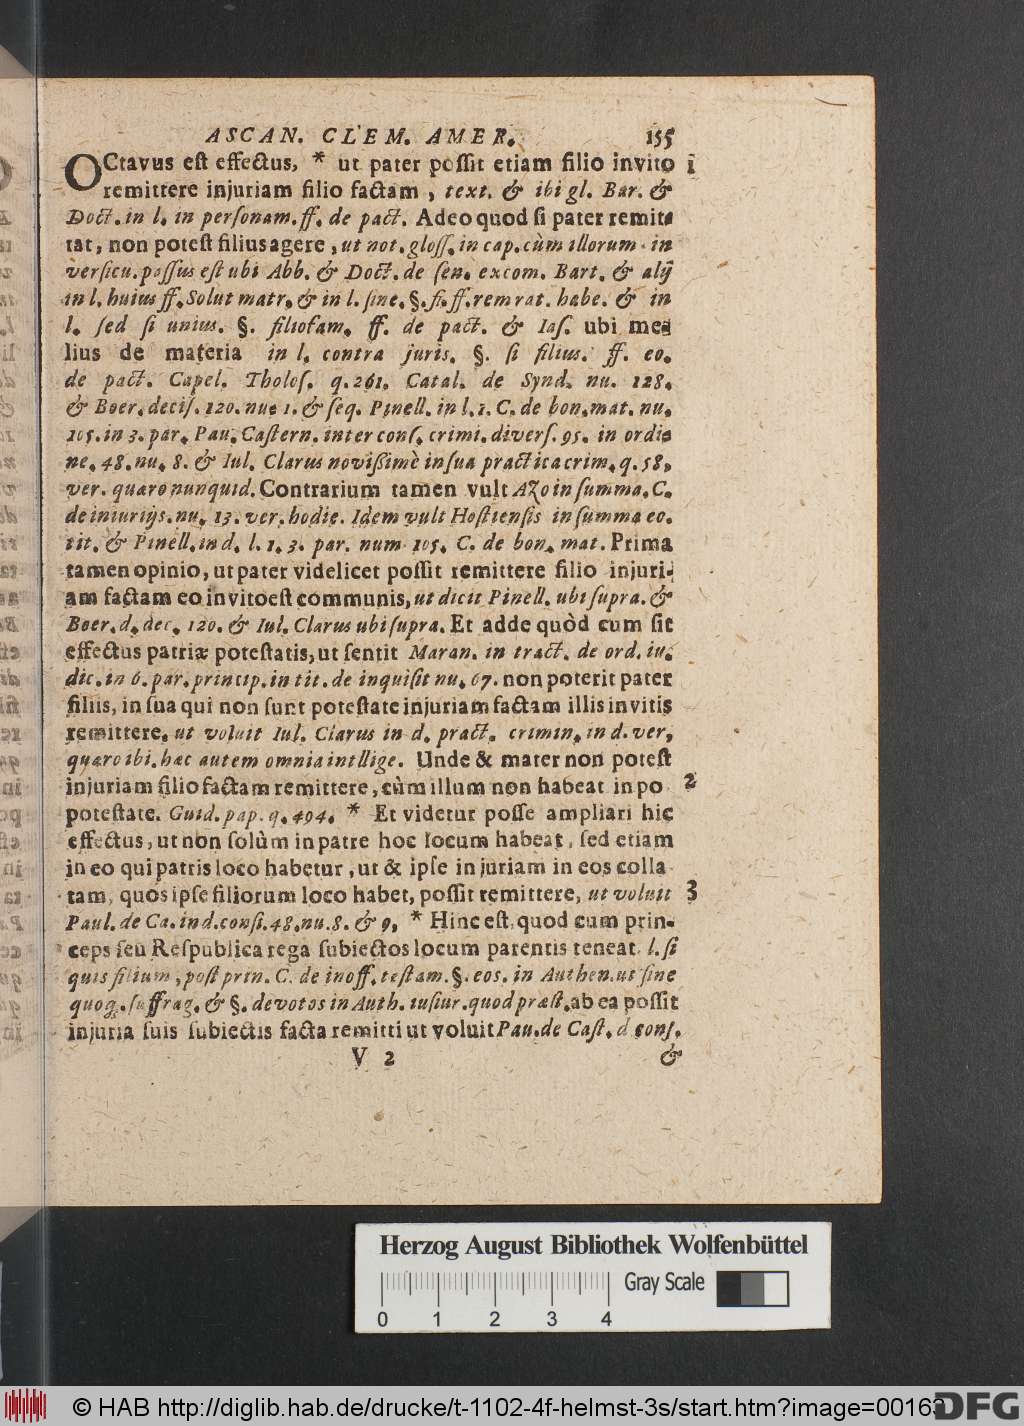 ASCAN. CLEM. AMER. 155
OCtavus eſt effectus, * ut pater poſſit etiam filio invito 1
remittere injuriam filio factam, text. & ibi gl. Bar. &
Doct. in l. in perſonam. ff. de pact. Adeo quod ſi pater remit-
tat, non poteſt filius agere, ut not. gloſſ. in cap. cùm illorum. in
verſicu. paſſus eſt ubi Abb. & Doct. de ſen. excom. Bart. & alij
in l. huius ff. Solut matr. & in l. ſine. §. ſi. ff. rem rat. habe. & in
l. ſed ſi unius. §. filiofam. ff. de pact. & Iaſ. ubi me-
lius de materia in l. contra juris. §. ſi filius. ff. eo.
de pact. Capel. Tholoſ. q. 261. Catal. de Synd. nu. 128.
& Boer. deciſ. 120. nu. 1. & ſeq. Pinell. in l. 1. C. de bon. mat. nu.
105. in 3. par. Pau. Caſtern. inter conſ. crimi. diverſ. 95. in ordi-
ne. 48. nu. 8. & Iul. Clarus novißimè in ſua practica crim. q. 58.
ver. quæro nunquid. Contrarium tamen vult Azo in ſumma. C.
de iniurijs. nu. 13. ver. hodie. Idem vult Hoſtienſis in ſumma eo.
tit. & Pinell. in d. l. 1. 3. par. num 105. C. de bon. mat. Prima
tamen opinio, ut pater videlicet poſſit remittere filio injuri-
am factam eo invito eſt communis, ut dicit Pinell. ubi ſupra. &
Boer. d. dec. 120. & Iul. Clarus ubi ſupra. Et adde quòd cum ſit
effectus patriæ poteſtatis, ut ſentit Maran. in tract. de ord. iu.
dic. in 6. par. princip. in tit. de inquiſit nu. 67. non poterit pater
filiis, in ſua qui non ſunt poteſtate injuriam factam illis invitis
remittere, ut voluit Iul. Clarus in d. pract. crimin. in d. ver,
quæro ibi. hæc autem omnia intllige. Unde & mater non poteſt
injuriam filio factam remittere, cùm illum non habeat in po 2
poteſtate. Guid. pap. q. 494. * Et videtur poſſe ampliari hic
effectus, ut non ſolùm in patre hoc locum habeat, ſed etiam
in eo qui patris loco habetur, ut & ipſe injuriam in eos colla
tam, quos ipſe filiorum loco habet, poſſit remittere, ut voluit 3
Paul. de Ca. in d. conſi. 48. nu. 8. & 9, * Hinc eſt, quod cum prin-
ceps ſeu Reſpublica rega ſubiectos locum parentis teneat. l. ſi
quis filium, poſt prin. C. de inoff. teſtam. §. eos. in Authen. ut ſine
quoq. ſuffrag. & §. devotos in Auth. iuſiur. quod præſt. ab ea poſſit
injuria ſuis ſubiectis facta remitti ut voluit Pau. de Caſt. d conſ.
V 2 &
Herzog August Bibliothek Wolfenbüttel
Gray Scale
0 1 2 3 4
© HAB http://diglib.hab.de/drucke/t-1102-4f-helmst-3s/start.htm?image=00163
DFG